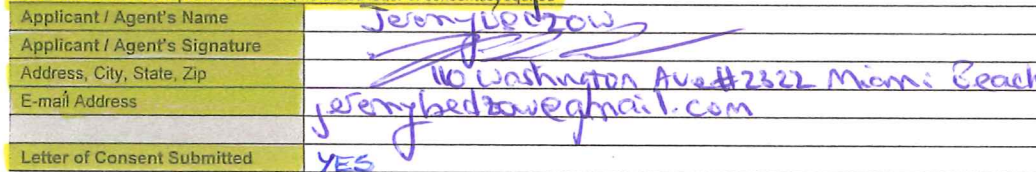 Applicant / Agent's Name Jeremy Bedzow
Applicant / Agent's Signature
Address, City, State, Zip 110 Washington Ave #2322 Miami Beach
E-mail Address jeremybedzow@gmail.com
Letter of Consent Submitted YES